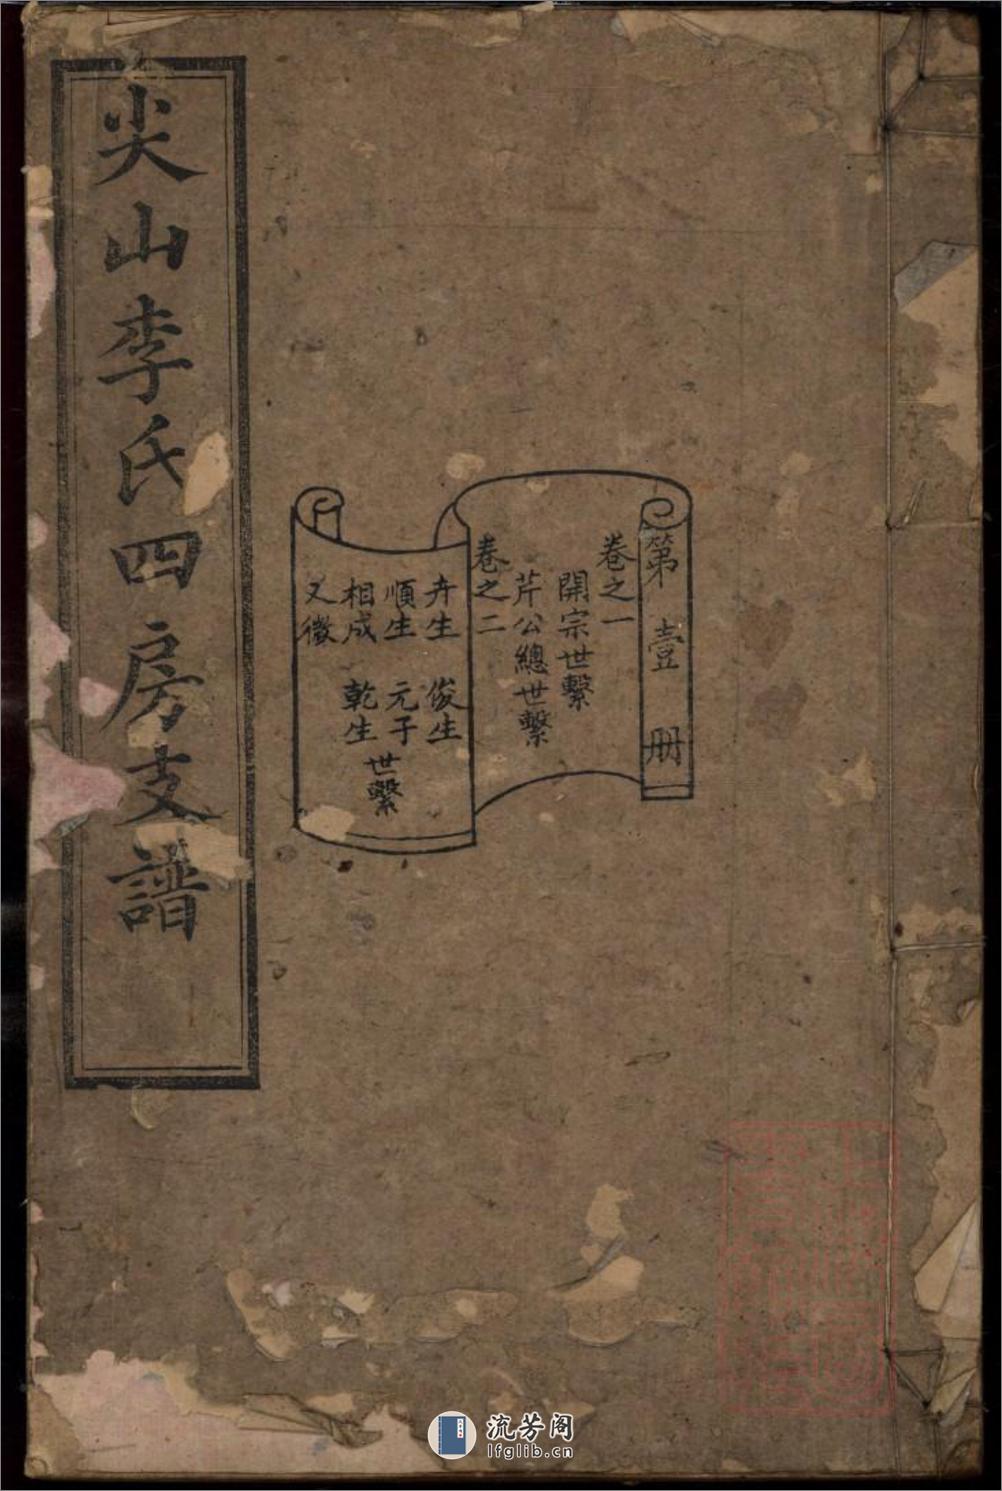 尖山李氏四房支譜
第壹册
卷之一
開宗世繫
芹公總世繫
卷之二
卉生 俊生
順生 元子
相成 乾生
又徵
世繫
流芳阁
lfglib.cn